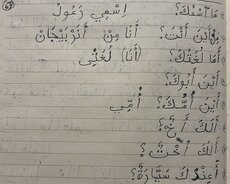 مَا اسْمُكَ؟ اِسْمِي رَسُولْ
مِنْ أَيْنَ أَنْتَ؟ أَنَا مِنْ أَذَرْبَيْجَانْ
مَا لُغَتُكَ؟ (أَنَا) لُغَتِي
أَيْنَ أَبُوكَ؟
أَيْنَ أُمُّكَ؟ أُمِّي
أَلَكَ أَخٌ؟
أَلَكَ أُخْتٌ؟
أَعِنْدَكَ سَيَّارَةٌ؟